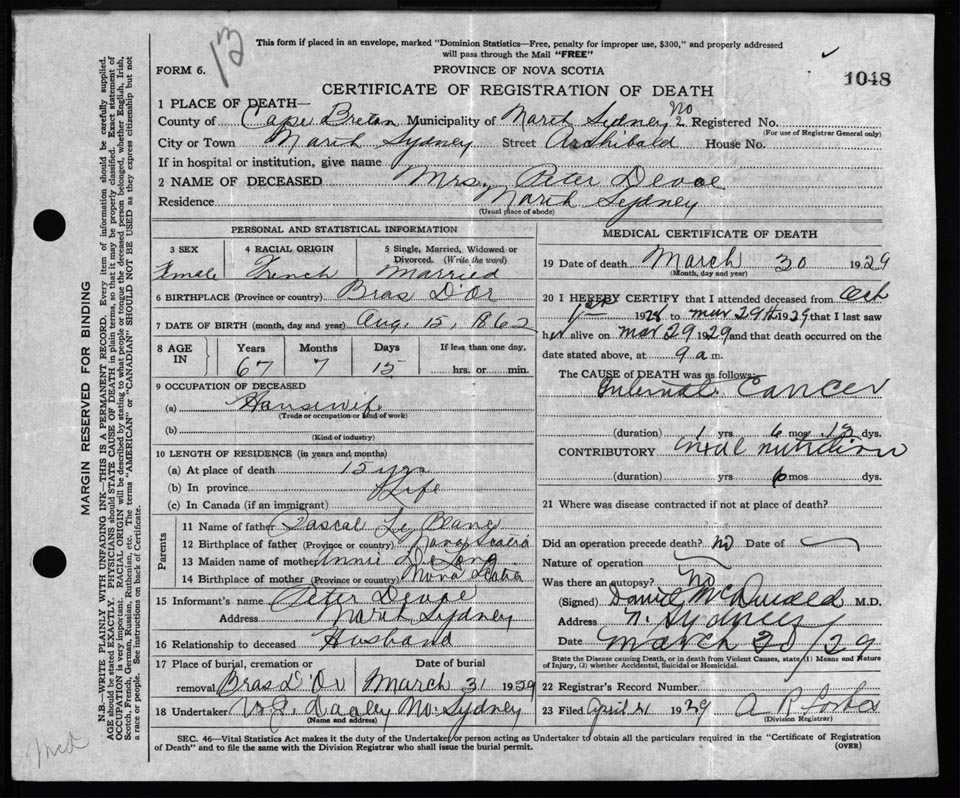 13
This form if placed in an envelope, marked "Dominion Statistics—Free, penalty for improper use, $300," and properly addressed
will pass through the Mail "FREE"
FORM 6.
PROVINCE OF NOVA SCOTIA
1048
CERTIFICATE OF REGISTRATION OF DEATH
1 PLACE OF DEATH—
County of Cape Breton Municipality of North Sydney No 2 Registered No.
(For use of Registrar General only)
City or Town North Sydney Street Archibald House No.
If in hospital or institution, give name
2 NAME OF DECEASED Mrs. Peter Devoe
Residence North Sydney
(Usual place of abode)
PERSONAL AND STATISTICAL INFORMATION
3 SEX
Female
4 RACIAL ORIGIN
French
5 Single, Married, Widowed or
Divorced. (Write the word)
Married
6 BIRTHPLACE (Province or country) Bras D'Or
7 DATE OF BIRTH (month, day and year) Aug. 15, 1862
8 AGE IN
Years
67
Months
7
Days
15
If less than one day.
hrs. or min.
9 OCCUPATION OF DECEASED
(a) Housewife
(Trade or occupation or kind of work)
(b)
(Kind of industry)
10 LENGTH OF RESIDENCE (in years and months)
(a) At place of death 15 yrs
(b) In province Life
(c) In Canada (if an immigrant)
Parents
11 Name of father Pascal Le Blanc
12 Birthplace of father (Province or country) Nova Scotia
13 Maiden name of mother Annie
14 Birthplace of mother (Province or country) Nova Scotia
15 Informant's name Peter Devoe
Address North Sydney
16 Relationship to deceased Husband
17 Place of burial, cremation or
removal Bras D'Or
Date of burial
March 31 1929
18 Undertaker No. Sydney
(Name and address)
MEDICAL CERTIFICATE OF DEATH
19 Date of death March 30 1929
(Month, day and year)
20 I HEREBY CERTIFY that I attended deceased from Oct
1st 1928 to Mar 29th 1929 that I last saw
her alive on Mar 29 1929 and that death occurred on the
date stated above, at 9 a m.
The CAUSE of DEATH was as follows:
Internal Cancer
(duration) 1 yrs 6 mos 13 dys.
CONTRIBUTORY nutrition
(duration) yrs 6 mos dys.
21 Where was disease contracted if not at place of death?
Did an operation precede death? no Date of
Nature of operation
Was there an autopsy? no
(Signed) Daniel McDonald M.D.
Address N. Sydney
Date March 30/29
State the Disease causing Death, or in death from Violent Causes, state (1) Means and Nature
of Injury, (2) whether Accidental, Suicidal or Homicidal.
22 Registrar's Record Number
23 Filed April 1929 A R Forbes
(Division Registrar)
SEC. 46—Vital Statistics Act makes it the duty of the Undertaker or person acting as Undertaker to obtain all the particulars required in the "Certificate of Registration
of Death" and to file the same with the Division Registrar who shall issue the burial permit.
(OVER)
MARGIN RESERVED FOR BINDING
N.B.—WRITE PLAINLY WITH UNFADING INK—THIS IS A PERMANENT RECORD. Every item of information should be carefully supplied.
AGE should be stated EXACTLY. PHYSICIANS should STATE CAUSE OF DEATH in plain terms, so that it may be properly classified. Exact statement of
OCCUPATION is very important. RACIAL ORIGIN will be described by stating to what people or tongue the deceased person belonged, whether English, Irish,
Scotch, French, German, Russian, Ruthenian, etc. The terms "AMERICAN" or "CANADIAN" SHOULD NOT BE USED as they express citizenship but not
a race or people. See instructions on back of Certificate.